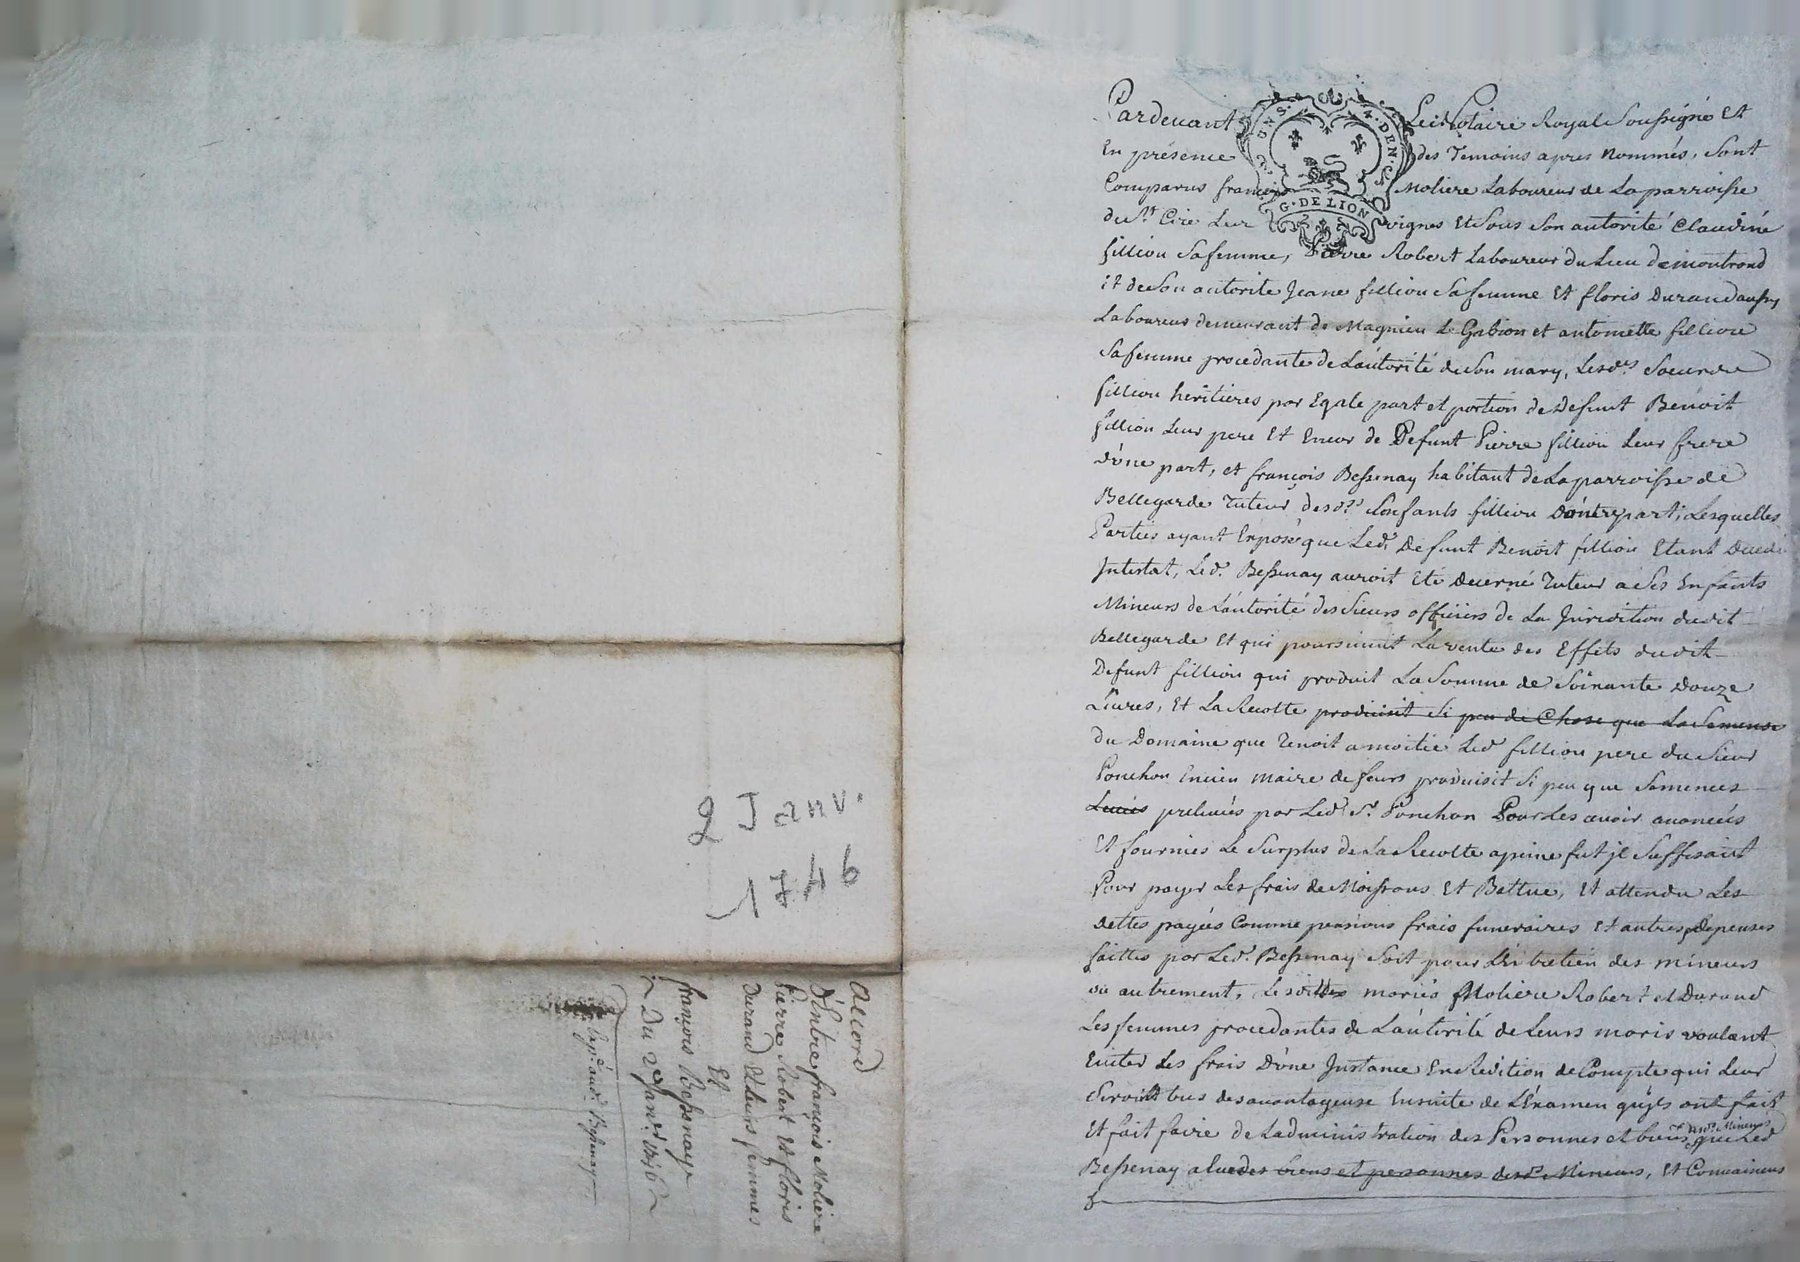 2 Janv.
1746
Accord
D'Entre françois Moliere
Pierre Robert Et floris
Durand Et leurs femmes
Et
françois Bessenaye
Du 2e Janer. 1746
Expe. aud. Bessenay
UNS. 4. DEN.
G. DE LION
Pardevant Le Notaire Royal Soussigné Et
En présence des Temoins apres Nommés, Sont
Comparus françois Moliere Laboureur de La parroisse
de St. Cire Les vignes Et Sous Son autorité Claudine
fillion Safemme, Pierre Robert Laboureur du Lieu de montrond
Et de Son autorité Jeane fillion Safemme Et floris Durand aussy
Laboureur demeurant de Magnieu Le Gabion et antoinette fillion
Safemme procedante de L'autorité de Son mary, Lesdes. Soeurs
fillion heritieres par Egale part et portion de Defunt Benoit
fillion Leur pere Et Encor de Defunt Pierre fillion Leur frere
D'une part, et françois Bessenay habitant de La parroisse de
Bellegarde Tuteur desds. Enfants fillion D'autre part, Lesquelles
Parties ayant Exposé que Led. Defunt Benoit fillion Etant Decedé
Intestat, Led. Bessenay auroit Eté decerné Tuteur a Ses Enfants
Mineurs de L'autorité des Sieurs officiers de La Juridition dudit
Bellegarde Et qui poursuivit La vente des Effets dudit
Defunt fillion qui produit La Somme de Soixante Douze
Livres, Et La Recolte produisit Si peu de Chose que La Semense
du Domaine que Tenoit a moitié Led fillion pere du Sieur
Ponchon Encien maire de feurs produisit Si peu que Semences
prelevés par Led. Sr. Ponchon Pour Les avoir avancés
Et fournies Le Surplus de La Recolte apeine fut jl Suffisant
Pour payer Les frais de Moissons Et Battue, Et attendu Les
dettes payées Comme pensions frais funeraires Et autres depenses
faittes par Led. Bessenay Soit pour L'Entretien des mineurs
ou autrement, Lesdittes mariés Moliere Robert et Durand
Les femmes procedantes de L'autorité de Leurs maris voulant
Eviter Les frais D'une Instance En Redition de Compte qui Leur
Seroit tres desavantageuse Ensuite de L'Examen qu'jls ont fait
Et fait faire de L'administration des Personnes et biens desd. Mineurs que Led
Bessenay a Eue des biens et personnes desd. Mineurs, Et Convaincus